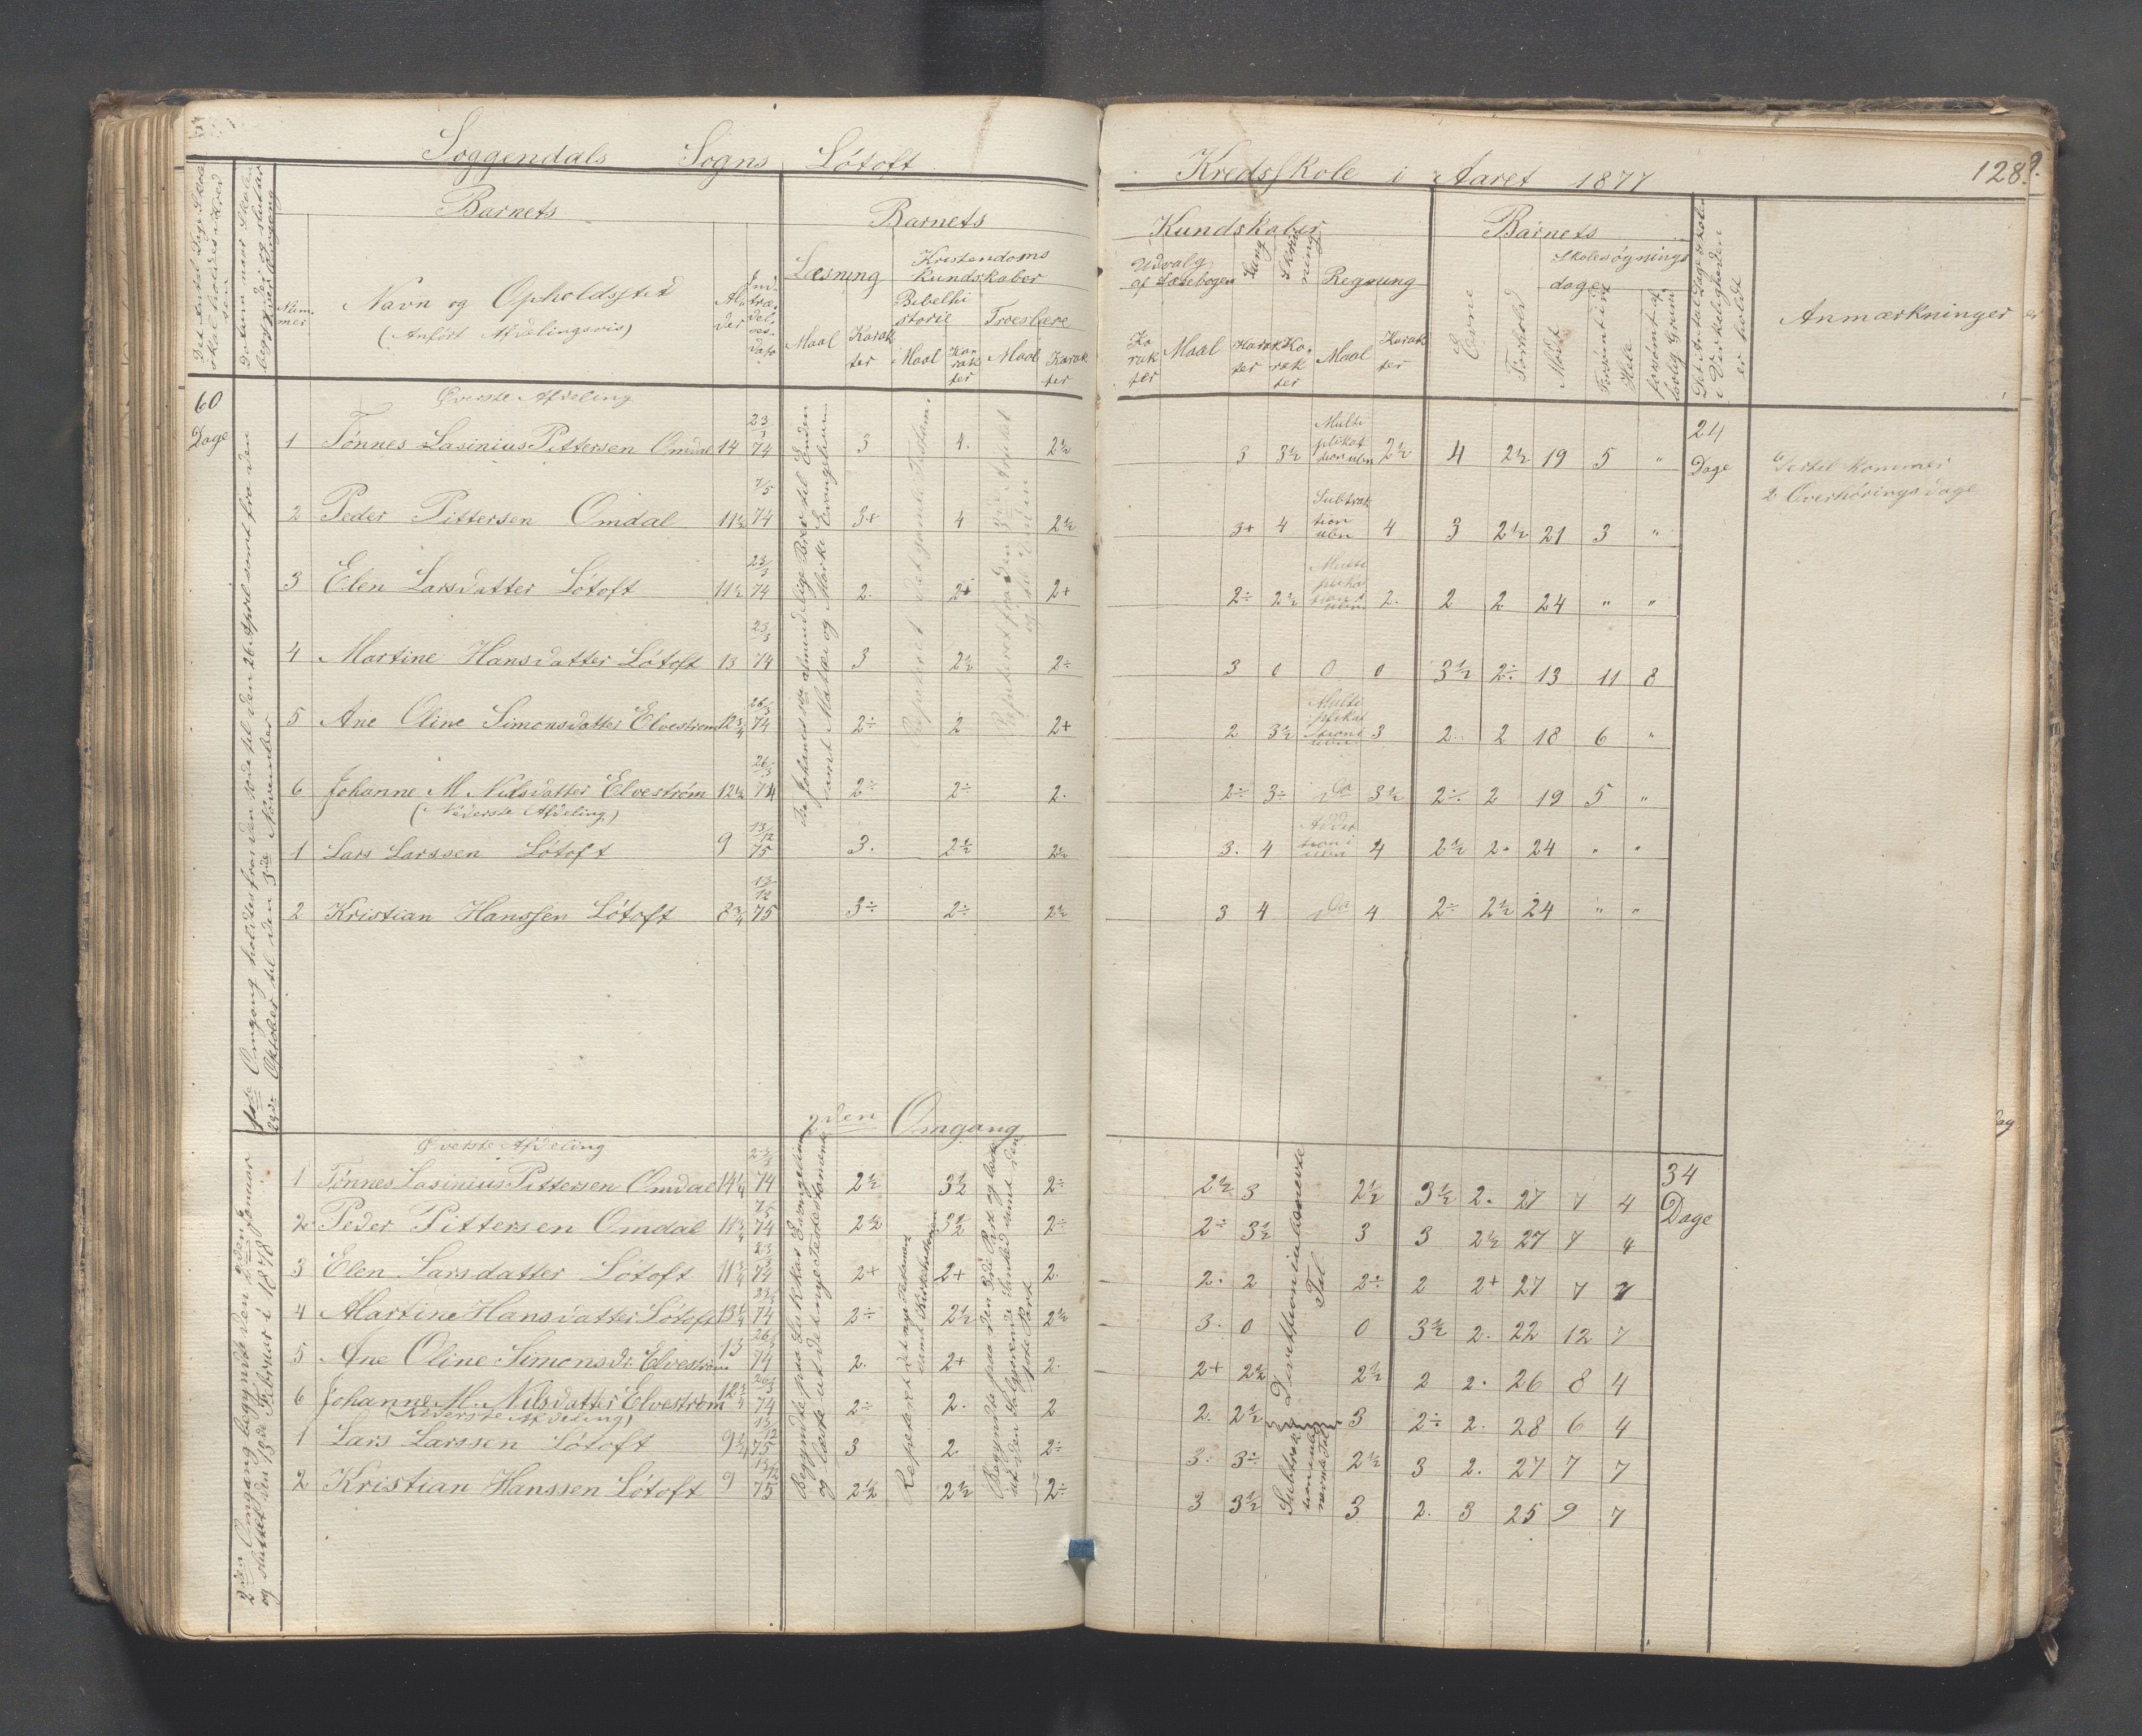 Soggendals Sogns Lótoft Kredsskole i Aaret 1877 128
Barnets Barnets Kundskaber Barnets
Det Antal Dage Skolen skal holdes i Kredsen
Datum naar Skolen begynder og slutter hver Omgang
Nummer
Navn og Opholdssted
(Anført Afdelingsvis)
Alder
Indtrædelsesdato
Læsning
Maal Karakter
Kristendoms Kundskaber
Bibelhistorie Troeslære
Maal Karakter Maal Karakter
Udvalg af Læsebogen
Karakter Maal
Sang Karakter
Skrivning Karakter
Regnung
Maal Karakter
Evne
Forhold
Skolesøgnings dage
Mødt
Forsømt i det Hele
forsømt af lovlig Grund
Det Antal Dage Skolen i Virkeligheden er holdt
Anmærkninger
60 Dage
1ste Omgang holdtes fra den 10de til den 26 April samt fra den 29de Oktober til den 3die November
Øverste Afdeling
1 Tónnes Lasinius Pittersen Omdal 14 23/3 74 3 4. 2½ 3 3½ Multiplikation i ubn 2½ 4 2½ 19 5 "
24 Dage
hertil kommer
2 Overhørings dage
2 Peder Pittersen Omdal 11½ 7/5 74 3+ 4 2½ 3+ 4 Subtraktion ubn 4 3 2½ 21 3 "
3 Elen Larsdatter Lótoft 11½ 23/3 74 2. 2+ 2+ 2÷ 2½ Multiplikation i ubn 2. 2 2 24 " "
4 Martine Hansdatter Lótoft 13 23/3 74 3 2½ 2÷ 3 0 0 0 3½ 2÷ 13 11 8
5 Ane Oline Simonsdatter Elvestrøm 12¾ 26/3 74 2÷ 2 2+ 2 3½ Multiplikation i ubn 3 2. 2 18 6 "
6 Johanne M Nilsdatter Elvestrøm 12½ 26/3 74 2÷ 2÷ 2. 2÷ 3÷ Do 3½ 2÷ 2 19 5 "
(Nederste Afdeling)
1 Lars Larssen Lótoft 9 13/12 75 3. 2½ 2½ 3. 4 Addition i ubn 4 2½ 2. 24 " "
2 Kristian Hanssen Lótoft 8¾ 13/12 75 3÷ 2÷ 2½ 3 4 Do 4 2÷ 2½ 24 " "
fra Johanes almindelige Brev til Enden samt Matæi og Marki Evangelium
Repeteret det gamle Testam
Repeteret fra den 3die Artikel og til Enden
2den Omgang
2den Omgang begyndte den 2den Januar og sluttet den 13de Februar i 1878
Øverste Afdeling
1 Tónnes Lasinius Pittersen Omdal 14¼ 23/3 74 2½ 3½ 2÷ 2½ 3 2½ 3½ 2. 27 7 4
34 Dage
2 Peder Pittersen Omdal 11¾ 7/5 74 2½ 3½ 2÷ 2÷ 3½ 3 3 2½ 27 7 4
3 Elen Larsdatter Lótoft 11¾ 23/3 74 2+ 2+ 2. 2. 2 2÷ 2 2+ 27 7 7
4 Martine Hansdatter Lótoft 13¼ 23/3 74 2÷ 2½ 2½ 3. 0 0 3½ 2. 22 12 7
5 Ane Oline Simonsdr Elvestrøm 13 26/3 74 2. 2+ 2. 2+ 2½ 2½ 2 2. 26 8 4
6 Johanne M. Nilsdatter Elvestrøm 12¾ 26/3 74 2÷ 2. 2 2. 2½ 3 2÷ 2. 28 6 4
(Nederste Afdeling)
1 Lars Larssen Lótoft 9¼ 13/12 75 3 2 2÷ 3. 3÷ 2½ 3 2. 27 7 7
2 Kristian Hanssen Lótoft 9 13/12 75 2½ 2½ 2÷ 3 3½ 3 2. 3 25 9 7
Begyndte paa Lukkas Evangelium og læste ut det nye Testamente
Repeteret det nye Testament samt Kirkehistorien
Begyndte paa den 3die Part og læste ut den Saliggjørende Sandhed samt den
Divitsion i ubenevnte Tal
Subtraktion i ubenevnte Tal